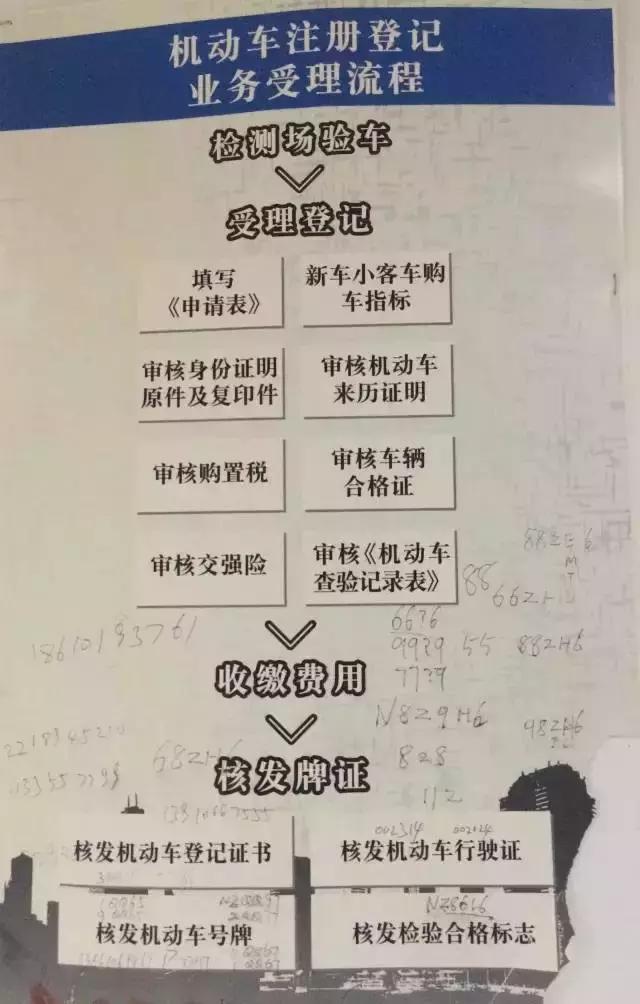 机动车注册登记
业务受理流程
检测场验车
受理登记
填写
《申请表》
新车小客车购
车指标
审核身份证明
原件及复印件
审核机动车
来历证明
审核购置税
审核车辆
合格证
审核交强险
审核《机动车
查验记录表》
88
66ZH
18610193761
66?6
99?9 55 88ZH6
77?9
收缴费用
N8Z9H6
98ZH6
68ZH6
828
核发牌证
112
002314 002124
核发机动车登记证书
核发机动车行驶证
NZ8616
核发机动车号牌
核发检验合格标志